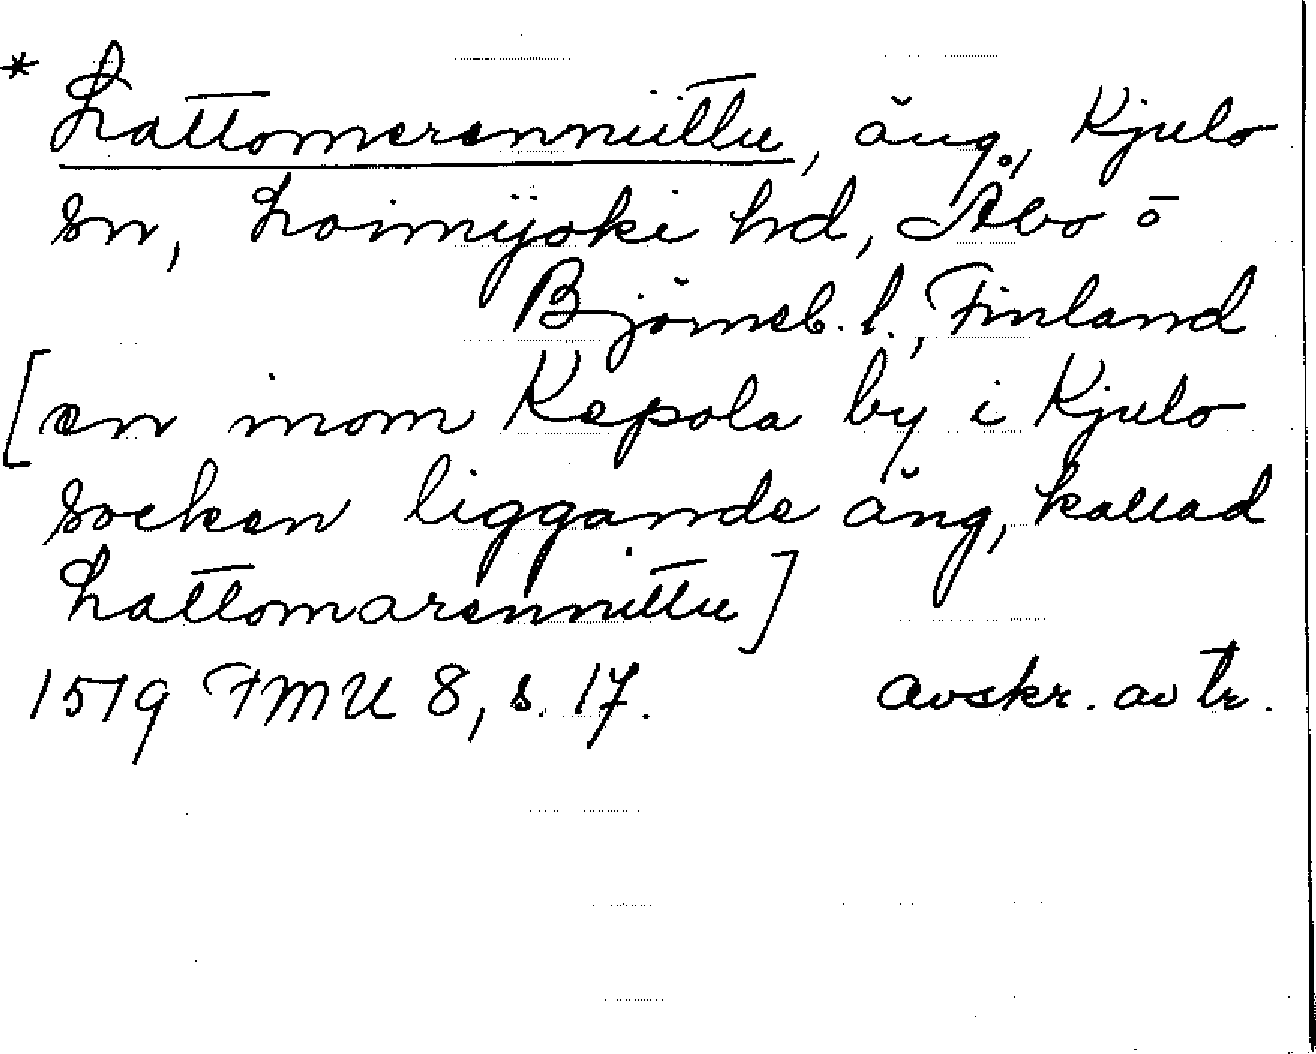 * Lattomerenniittu, äng, Kjulo
sn, Loimijoki hd, Åbo o
Björneb. l., Finland
[en inom Kepola by i Kjulo
socken liggande äng, kallad
Lattomarennittu]
1519 FMU 8, s. 17. avskr. av tr.